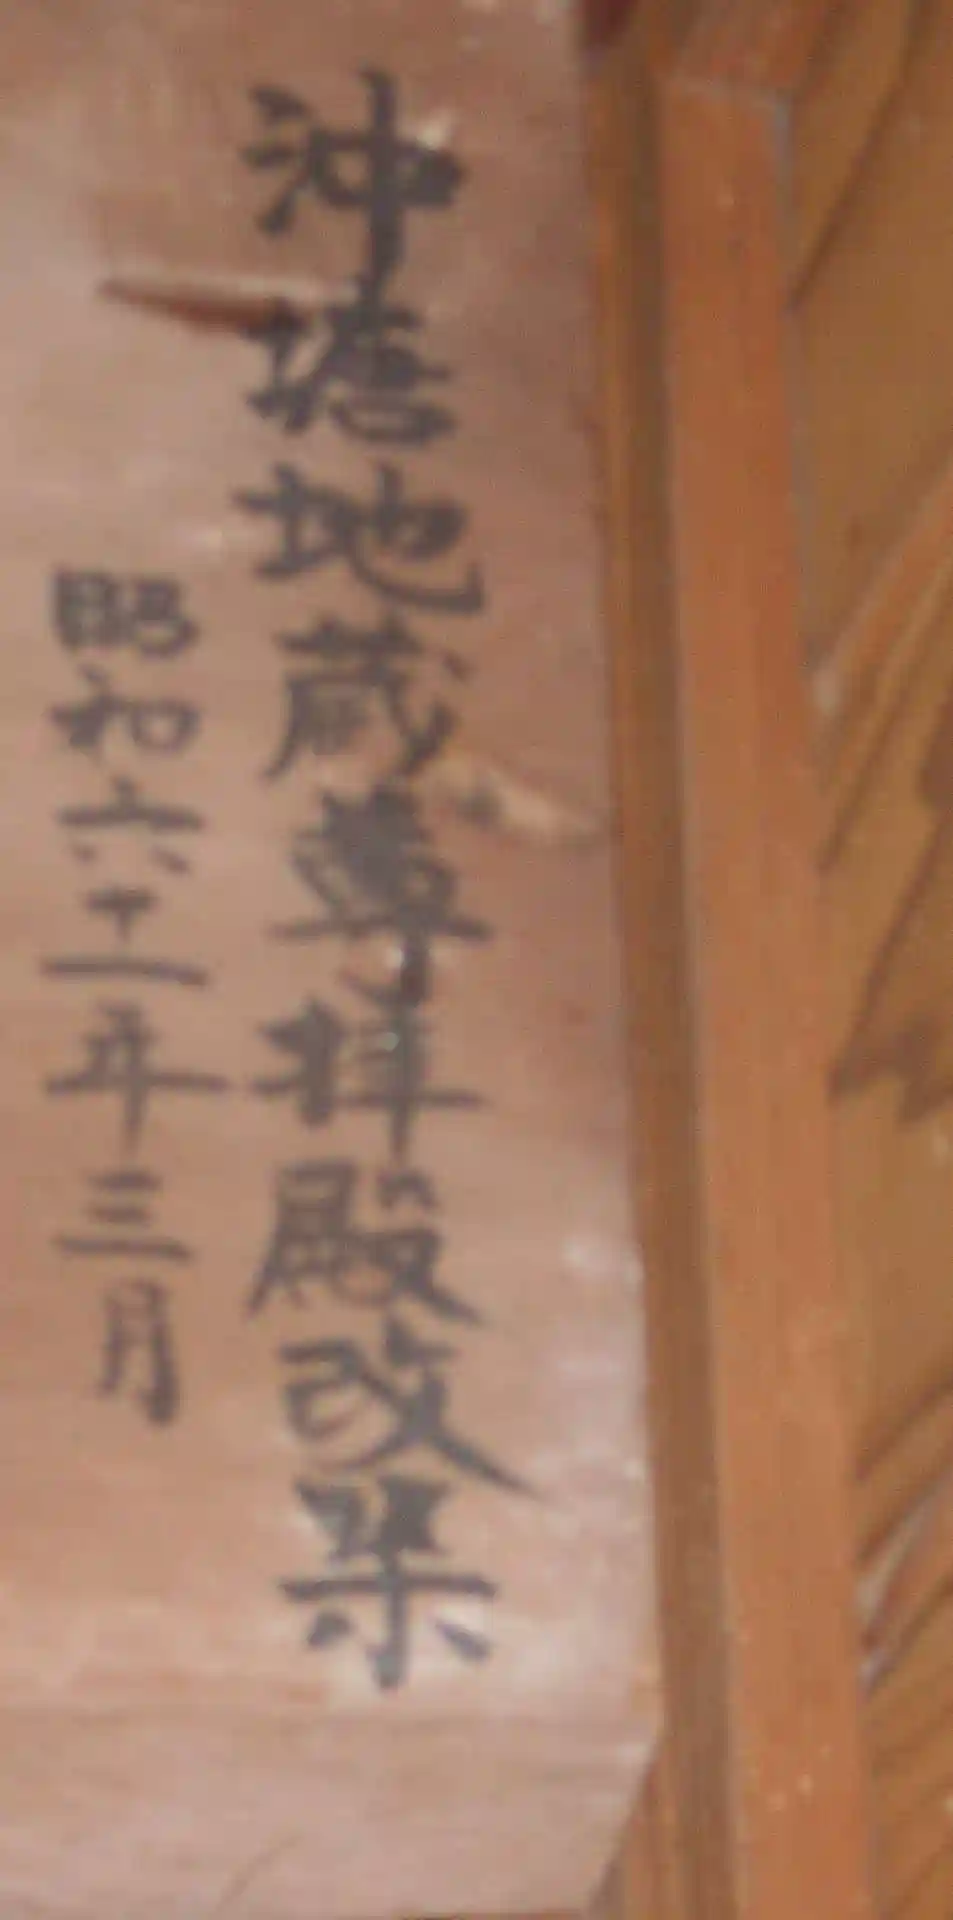 沖塘地蔵尊拝殿改築
昭和六十一年三月